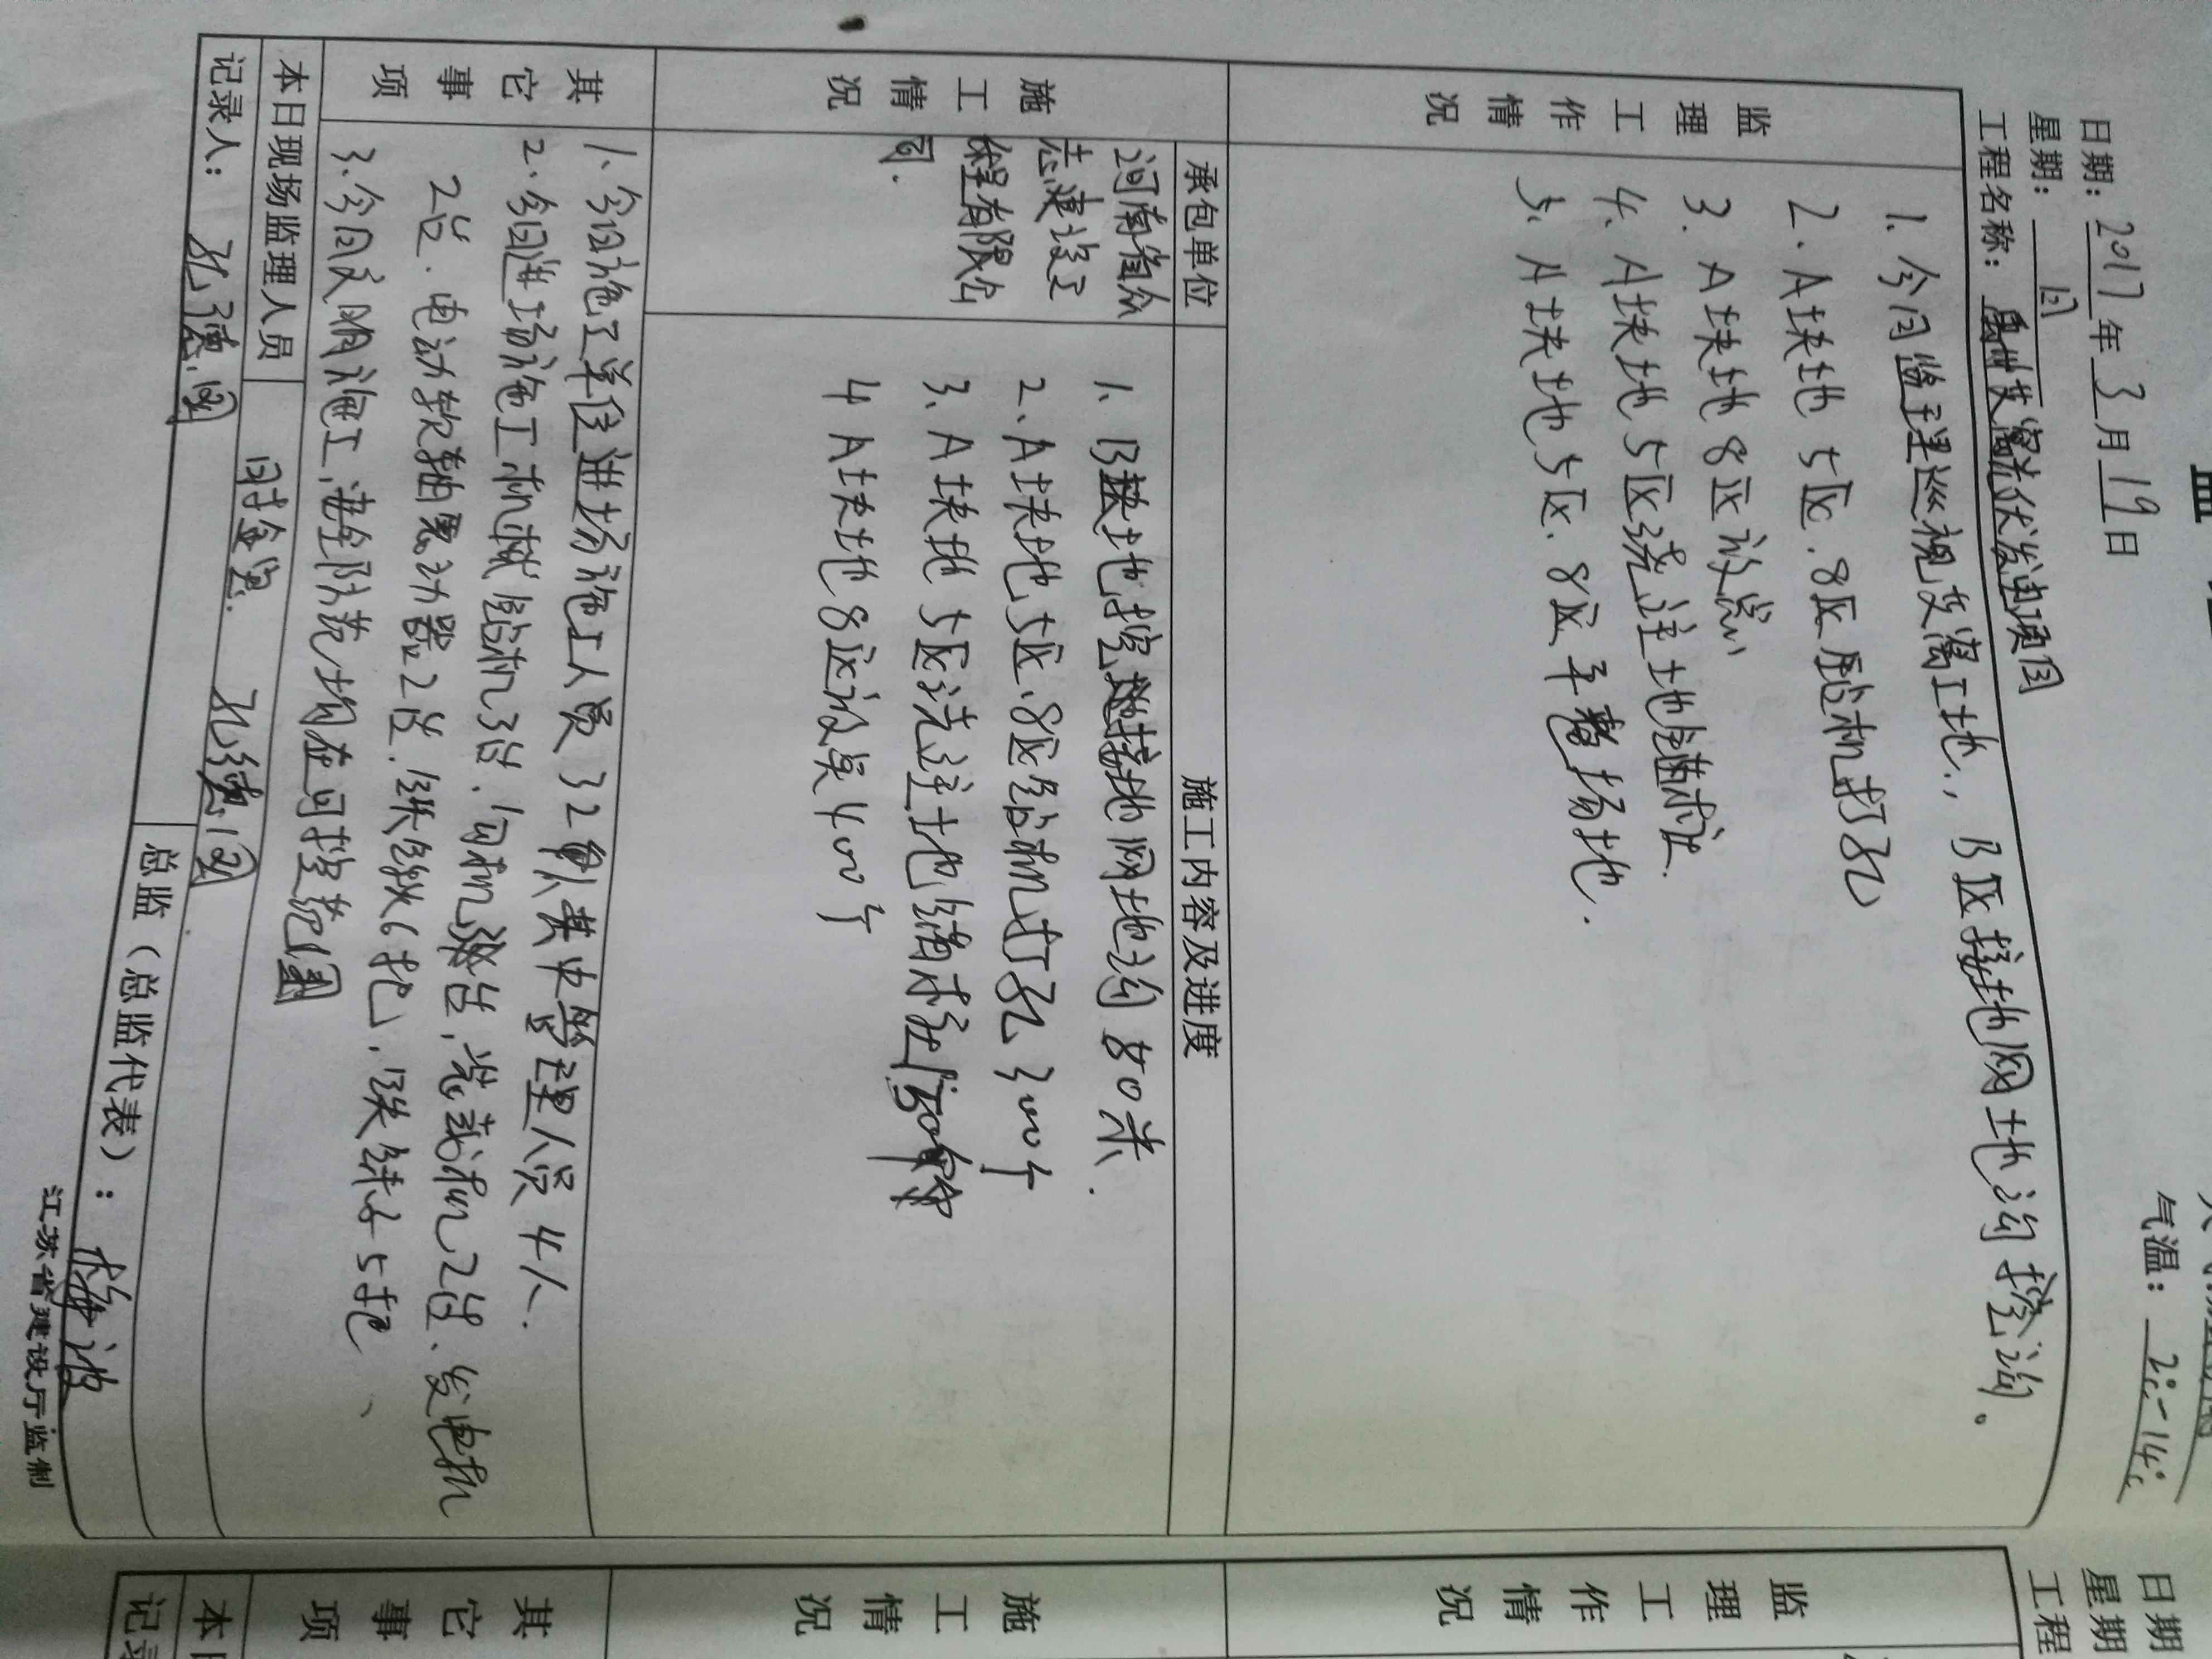 监
日期：2017年3月19日
气温：2℃-14℃
星期：日
工程名称：禹州茨窝光伏发电项目
监理工作情况
1. 今日监理巡视茨窝工地，B区接地网地沟挖沟。
2. A块地5区.8区钻机打孔
3. A块地8区放炭
4. A块地5区浇注土地锚桩.
5. A块地5区.8区平整场地.
施工情况
承包单位
施工内容及进度
河南省众
志建设工
程有限公
司.
1. B块地挖接地网地沟80米.
2. A块地5区.8区钻机打孔300个
3. A块地5区浇注土地锚桩
4 A块地8区放炭400个
其它事项
1. 今日施工单位进场施工人员32人其中管理人员4人.
2. 今日进场施工机械钻机3台.勾机台,装载机2台、发电机
2台.电动软轴震动器2台.铁锹6把.铁锤子5把、
3. 今日文明施工,安全防范均在可控范围
本日现场监理人员
时金
孔德国
记录人：孔德国
总监（总监代表）：
江苏省建设厅监制
日期
星期
工程
监理工作情况
施工情况
其它事项
本日
记录